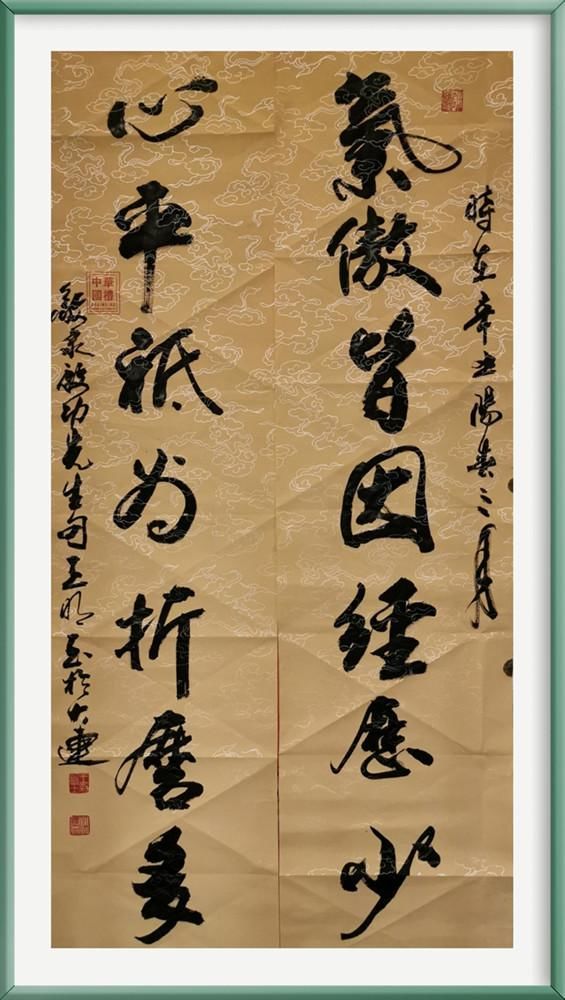 時在辛丑陽春三月
氣傲皆因經歷少
心平祗为折磨多
敬录啟功先生句王明书於大連
中華
國禮